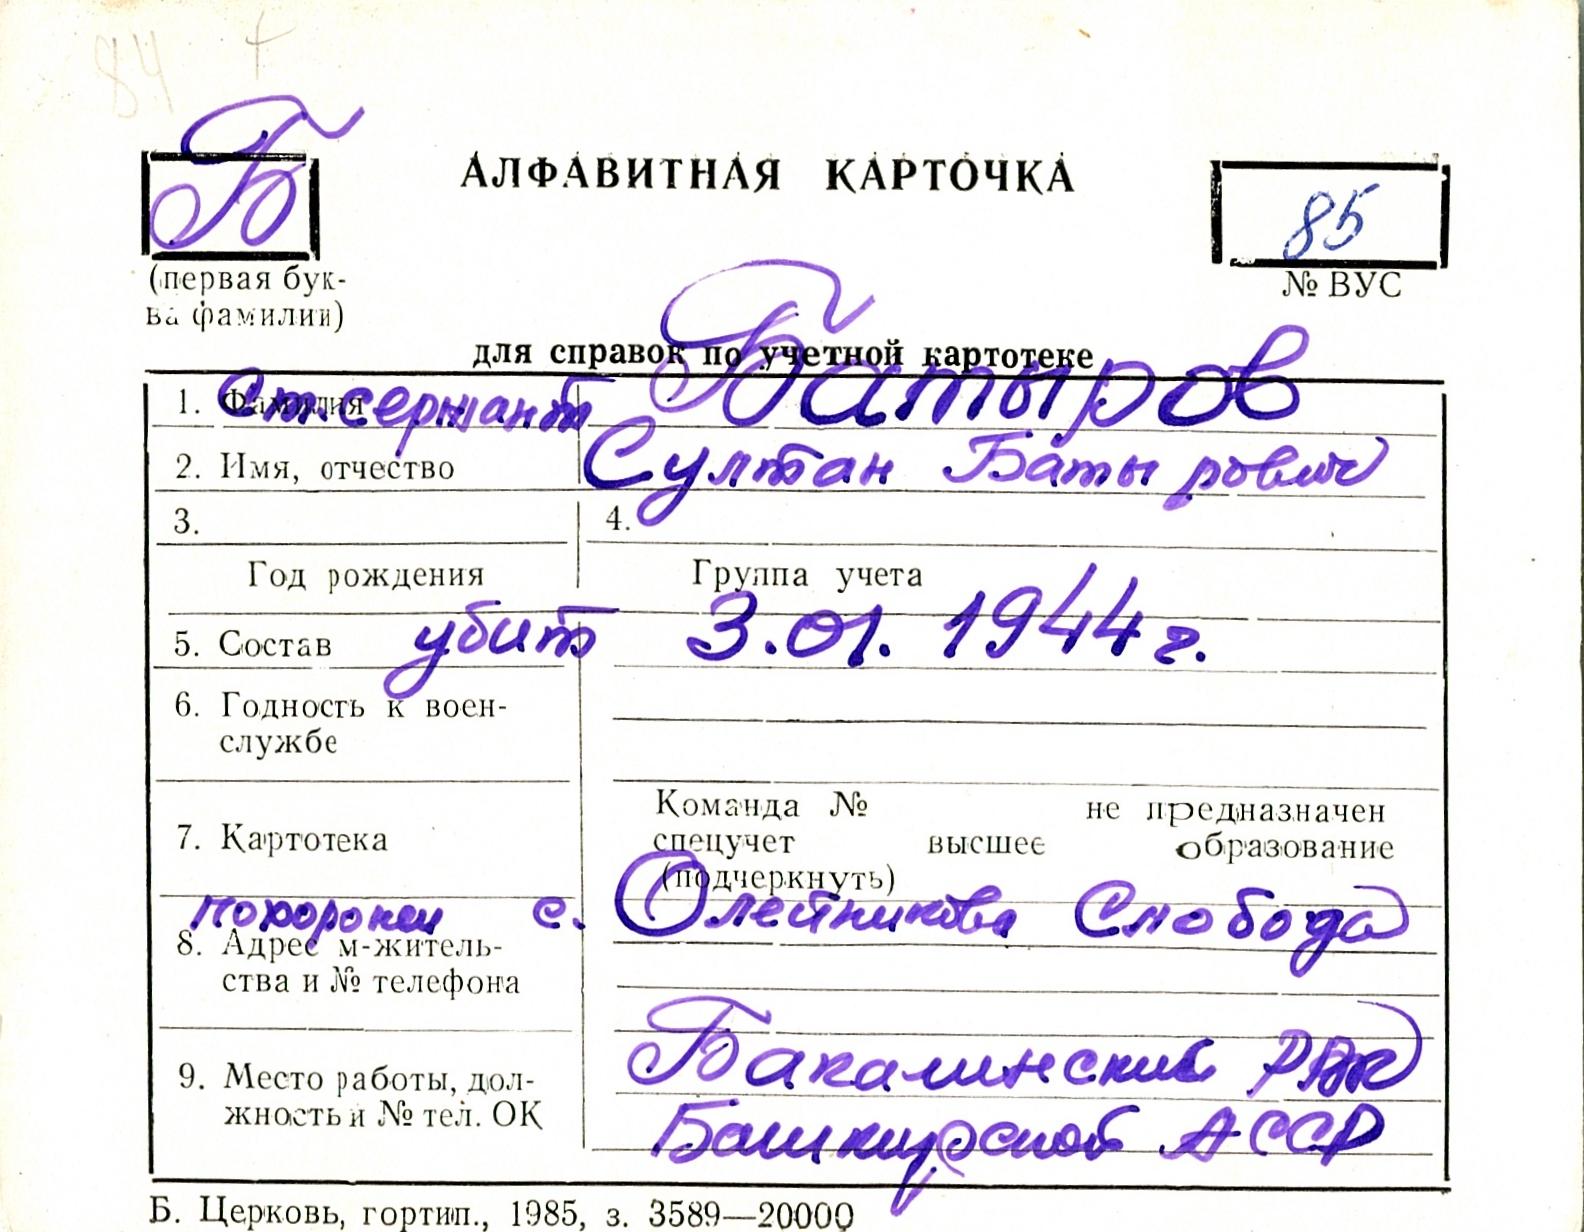 84 +
Б
АЛФАВИТНАЯ КАРТОЧКА
85
(первая бук-
ва фамилии)
№ ВУС
для справок по учетной картотеке
1. Фамилия Ст. сержант Батыров
2. Имя, отчество Султан Батырович
3. 4.
Год рождения Группа учета
5. Состав убит 3.01.1944 г.
6. Годность к воен-
службе
Команда № не предназначен
7. Картотека спецучет высшее образование
(подчеркнуть)
похоронен с. Олейникова Слобода
8. Адрес м-житель-
ства и № телефона
Бакалинский РВК
9. Место работы, дол-
жность и № тел. ОК
Башкирской АССР
Б. Церковь, гортип., 1985, з. 3589—20000